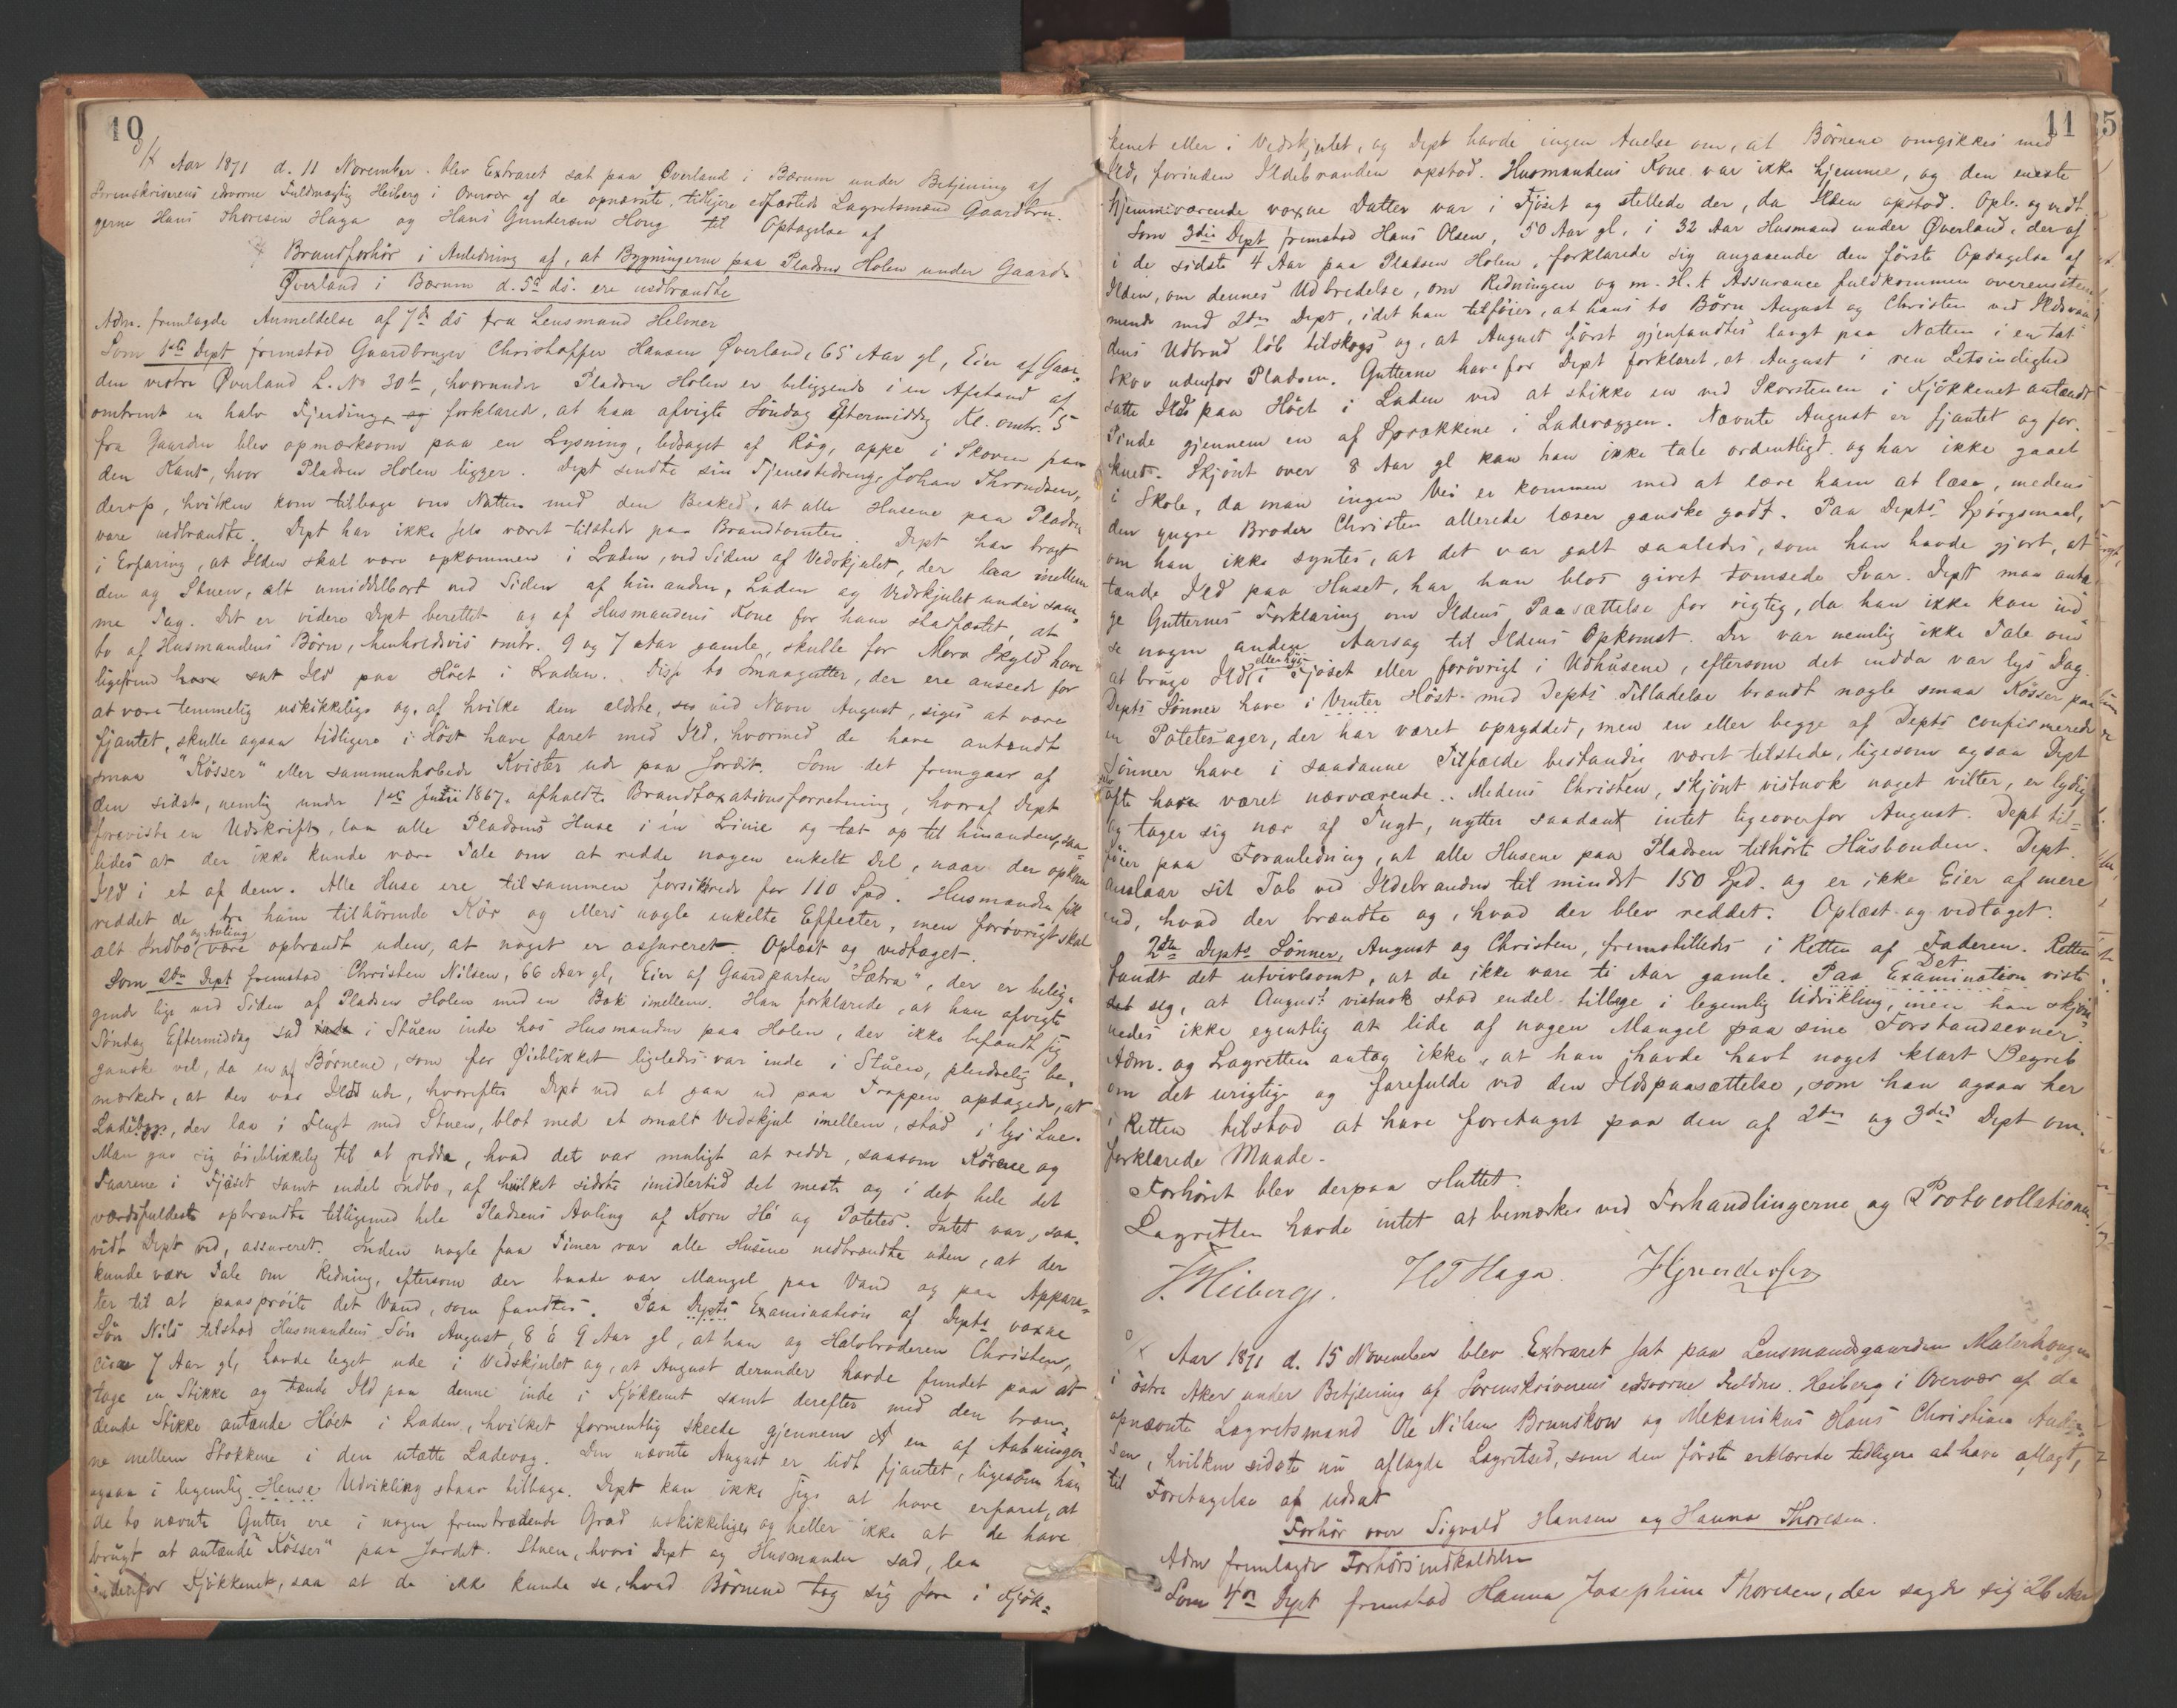 10
Aar 1871 d. 11 November blev Extraret sat paa Øverland i Bærum under Betjening af
Sorenskriverens edsvorne Fuldmægtig Heiberg i Overvær af de opnævnte, tidligere edfæstede Lagretsmænd Gaardbru-
gerne Hans Thoresen Haga og Hans Gundersen Horig til Optagelse af
Brandforhör i Anledning af, at Bygningerne paa Pladsen Holen under Gaarden
Øverland i Bærum d. 5te ds. ere nedbrændte
Adm. fremlagde Anmeldelse af 7de ds fra Lensmand Helmer
Som 1ste Dept fremstod Gaardbruger Christoffer Hansen Øverland, 65 Aar gl, Eier af Gaar-
den vestre Øverland L. No 30b, hvorunder Pladsen Holen er beliggende i en Afstand af
omtrent en halv Fjerding, og forklarede, at han afvigte Söndag Eftermiddag Kl. omtr. 5
fra Gaarden blev opmærksom paa en Lysning, ledsaget af Røg, oppe i Skoven paa
den Kant, hvor Pladsen Holen ligger. Dept sendte sin Tjenestedreng, Johan Throndsen,
derop, hvilken kom tilbage om Natten med den Besked, at alle Husene paa Pladsen
vare nedbrændte. Dept har ikke selv været tilstede paa Brandtomten. Dept har bragt
i Erfaring, at Ilden skal være opkommen i Laden, ved Siden af Vedskjulet, der laa imellem
den og Stuen, alt umiddelbart ved Siden af hinanden, Laden og Vedskjulet under sam-
me Tag. Det er videre Dept berettet og af Husmandens Kone for ham stadfæstet, at
to af Husmandens Börn, henholdsvis omtr. 9 og 7 Aar gamle, skulle for Mora Skyld have
ligefrem have sat Ild paa Höet i Laden. Disse to Smaagutter, der ere anseede for
at være temmelig uskikkelige og af hvilke den ældste, ved Navn August, siges at være
fjantet, skulle ogsaa tidligere i Höst have faret med Ild, hvormed de have antændt
smaa "Kösser" eller sammenhobede Kvister ude paa Jordet. Som det fremgaar af
den sidst, nemlig under 1ste Juni 1867, afholdte Brandtaxationsforretning, hvoraf Dept
foreviste en Udskrift, laa alle Pladsens Huse i én Linie og tæt op til hinanden, saa-
ledes at der ikke kunde være Tale om at redde nogen enkelt Del, naar der opkom
Ild i et af dem. Alle Huse ere tilsammen forsikrede for 110 Spd. Husmanden fik
reddet de tre ham tilhörende Kör og ellers nogle enkelte Effecter, men forövrigt skal
alt Indbo og Avling være opbrændt uden, at noget er assureret. Oplæst og vedtaget.
Som 2den Dept fremstod Christen Nilsen, 66 Aar gl, Eier af Gaardparten "Sætra", der er belig-
gende lige ved Siden af Pladsen Holen med en Bæk imellem. Han forklarede, at han afvigte
Söndag Eftermiddag sad inde i Stuen inde hos Husmanden paa Holen, der ikke befandt sig
ganske vel, da en af Börnene, som for Øieblikket ligeledes var inde i Stuen, pludselig be-
mærkede, at der var Ild ude, hvorefter Dept ved at gaa ud paa Trappen opdagede, at
Ladebygg., der laa i Flugt med Stuen, blot med et smalt Vedskjul imellem, stod i lys Lue.
Man gav sig öieblikkelig til at redde, hvad det var muligt at redde, saasom Körene og
Faarene i Fjöset samt endel Indbo, af hvilket sidste imidlertid det meste og i det hele det
værdifuldeste opbrændte tilligemed hele Pladsens Avling af Korn Hö og Potetes. Intet var, saa-
vidt Dept ved, assureret. Inden nogle faa Timer var alle Husene nedbrændte uden, at der
kunde være Tale om Redning, eftersom der baade var Mangel paa Vand og paa Appara-
ter til at paaspröite det Vand, som fandtes. Paa Depts Examination af Depts voxne
Sön Nils tilstod Husmandens Sön August, 8 à 9 Aar gl, at han og Halvbroderen Christen,
circa 7 Aar gl, havde leget ude i Vedskjulet og, at August derunder havde fundet paa at
tage en Stikke og tænde Ild paa denne inde i Kjökkenet samt derefter med den bræn-
dende Stikke antænde Höet i Laden, hvilket formentlig skeede gjennem en af Aabninger-
ne mellem Stokkene i den utætte Ladevæg. Den nævnte August er lidt fjantet, ligesom han
ogsaa i legemlig Hense Udvikling staar tilbage. Dept kan ikke sige at have erfaret, at
de to nævnte Gutter ere i nogen fremtrædende Grad uskikkelige og heller ikke at de have
brugt at antænde "Kösser" paa Jordet. Stuen, hvori Dept og Husmanden sad, laa
indenfor Kjökkenet, saa at de ikke kunde se, hvad Börnene tog sig fore i Kjök-
11
kenet eller i Vedskjulet, og Dept havde ingen Anelse om, at Börnene omgikkes med
Ild, forinden Ildebranden opstod. Husmandens Kone var ikke hjemme, og den eneste
hjemmeværende voxne Datter var i Fjöset og stellede der, da Ilden opstod. Opl. og vedt.
Som 3die Dept fremstod Hans Olsen, 50 Aar gl, i 32 Aar Husmand under Øverland, deraf
i de sidste 4 Aar paa Pladsen Holen, forklarede sig angaaende den förste Opdagelse af
Ilden, om dennes Udbredelse, om Redningen og m. H. t. Assurance fuldkommen overensstem-
mende med 2den Dept, idet han tilföier, at hans to Börn August og Christen ved Ildebran-
dens Udbrud löb tilskogs og, at August först gjenfandtes langt paa Natten i en tæt
Skov udenfor Pladsen. Gutterne have for Dept forklaret, at August i ren Letsindighed
satte Ild paa Höet i Laden ved at stikke en ved Skorstenen i Kjökkenet antændt
Pinde gjennem en af Sprækkene i Ladevæggen. Nævnte August er fjantet og for-
knet. Skjönt over 8 Aar gl kan han ikke tale ordentligt og har ikke gaaet
i Skole, da man ingen Vei er kommen med at lære ham at læse, medens
den yngre Broder Christen allerede læser ganske godt. Paa Depts Spörgsmaal,
om han ikke syntes, at det var galt saaledes, som han havde gjort, at
tænde Ild paa Huset, har han blot givet tomsede Svar. Dept maa anta-
ge Gutternes Forklaring om Ildens Paasættelse for rigtig, da han ikke kan ind-
se nogen anden Aarsag til Ildens Opkomst. Der var nemlig ikke Tale om
at bruge Ild eller Lys i Fjöset eller forövrigt i Udhusene, eftersom det endda var lys Dag.
Depts Sönner have i Vinter Höst med Depts Tilladelse brændt nogle smaa Kösser paa
en Potetesager, der har været opryddet, men en eller begge af Depts confirmerede
Sönner have i saadanne Tilfælde bestandig været tilstede, ligesom ogsaa Dept
ofte have været nærværende. Medens Christen, skjönt vistnok noget vilter, er lydig
og tager sig nær af Tugt, nytter saadant intet ligeoverfor August. Dept til-
föier paa Foranledning, at alle Husene paa Pladsen tilhörte Husbonden. Dept
anslaar sit Tab ved Ildebranden til mindst 150 Spd. og er ikke Eier af mere
end, hvad der brændte og, hvad der blev reddet. Oplæst og vedtaget.
2de Depts Sönner, August og Christen, fremstilledes i Retten af Faderen. Retten
fandt det utvivlsomt, at de ikke vare ti Aar gamle. Paa Examination Det viste
det sig, at August vistnok stod endel tilbage i legemlig Udvikling, men han skjön-
nedes ikke egentlig at lide af nogen Mangel paa sine Forstandsevner.
Adm. og Lagretten antog ikke, at han havde havt noget klart Begreb
om det urigtige og farefulde ved den Ildspaasættelse, som han ogsaa her
i Retten tilstod at have foretaget paa den af 2den og 3die Dept om-
forklarede Maade.
Forhöret blev derpaa sluttet.
Lagretten havde intet at bemærke ved Forhandlingerne og Protocollationen.
J. Heiberg. H T Haga. H Gundersen
Aar 1871 d. 15 November blev Extraret sat paa Lensmandsgaarden Malerhaugen
i östre Aker under Betjening af Sorenskriverens edsvorne Fuldm. Heiberg i Overvær af de
opnævnte Lagretsmænd Ole Nilsen Brunskow og Mekanikus Hans Christian Ander-
sen, hvilken sidste nu aflagde Lagretsed, som den förste erklærede tidligere at have aflagt,
til Foretagelse af udsat
Forhör over Sigvald Hansen og Hanna Thoresen.
Adm fremlagde Forhörsindkaldelse
Som 4de Dept fremstod Hanna Josephine Thoresen, der sagde sig 26 Aar